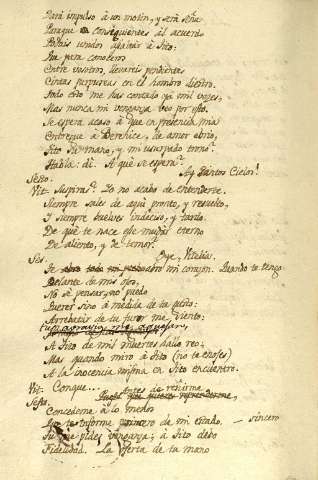 Dará impulso à un motin, y será seña
Paraque consiguientes al acuerdo
Podais unidos à Sito:
Pa para conoceros
Entre vosotros, llevareis pendientes
Cintas purpureas en el hombro diestro.
Todo esto me has contado ya mil veces,
Mas nunca mi venganza veo por esto.
Se espera acaso à que en presencia mia
Entregue à Berenice, de amor ebrio,
Tito su mano, y mi usurpado trono?
Habla: di. A qué se espera?
Sesto. Ay Santos Cielos!
Vit. Suspiras? Yo no acabo de entenderte.
Siempre sales de aqui pronto, y resuelto,
Y siempre vuelves indeciso, y tardo.
De qué te nace ese mudar eterno
De aliento, y de temor?
Ses. Oye, Vitelia.
mi corazon. Quando te tengo
Delante de mis ojos,
No sé pensar, no puedo
Querer sino à medida de tu gusto:
Arrebatar de tu furor me siento:
tu agravio me
A Tito de mil muertes hallo reo;
Mas quando miro à Tito (no te enojes)
A la inocencia misma en Tito encuentro.
Vit. Conque...
Sesto. Antes de reñirme
Concedeme à lo menos
Que te informe primero de mi estado. sincero
Tu me pides venganza; à Tito debo
Fidelidad. La oferta de tu mano